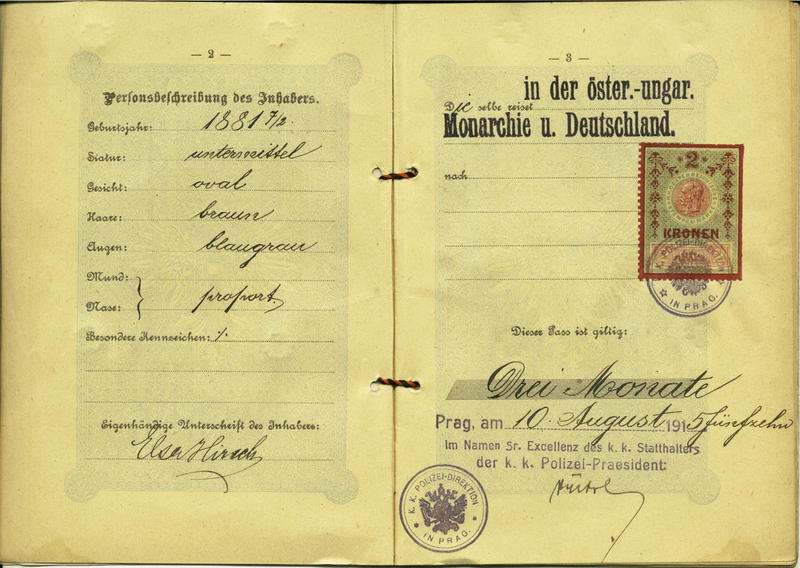 — 2 —
Personsbeschreibung des Inhabers.
Geburtsjahr: 1881 7/2.
Statur: untermittel
Gesicht: oval
Haare: braun
Augen: blaugrau
Mund:
Nase: proport.
Besondere Kennzeichen: ./.
Eigenhändige Unterschrift des Inhabers:
Elsa Hirsch
— 3 —
in der öster.-ungar.
Die selbe reiset
Monarchie u. Deutschland.
nach
2
KRONEN
K. K. POLIZEI-DIREKTION
IN PRAG.
Dieser Pass ist giltig:
Drei Monate
Prag, am 10. August 1915 fünfzehn
Im Namen Sr. Excellenz des k. k. Statthalters
der k. k. Polizei-Praesident:
K. K. POLIZEI-DIREKTION
IN PRAG.